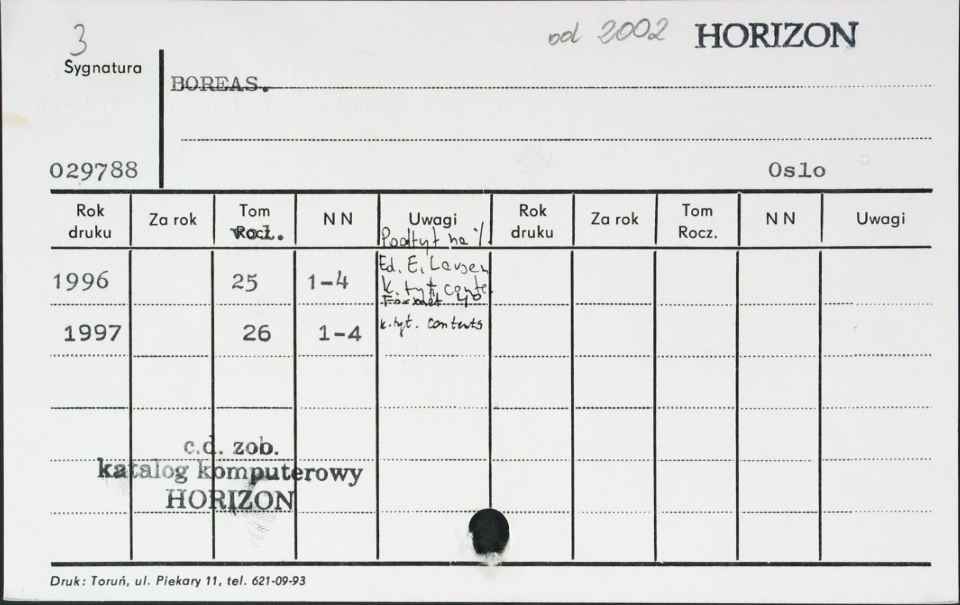 3
od 2002 HORIZON
Sygnatura
BOREAS.
029788
Oslo
Rok druku Za rok Tom Rocz. vol. N N Uwagi Rok druku Za rok Tom Rocz. N N Uwagi
Podtyt na
Ed. E. Larsen
1996 25 1-4 k. tyt. conte
Format 4o
1997 26 1-4 k. tyt. contents
c.d. zob.
katalog komputerowy
HORIZON
Druk: Toruń, ul. Piekary 11, tel. 621-09-93